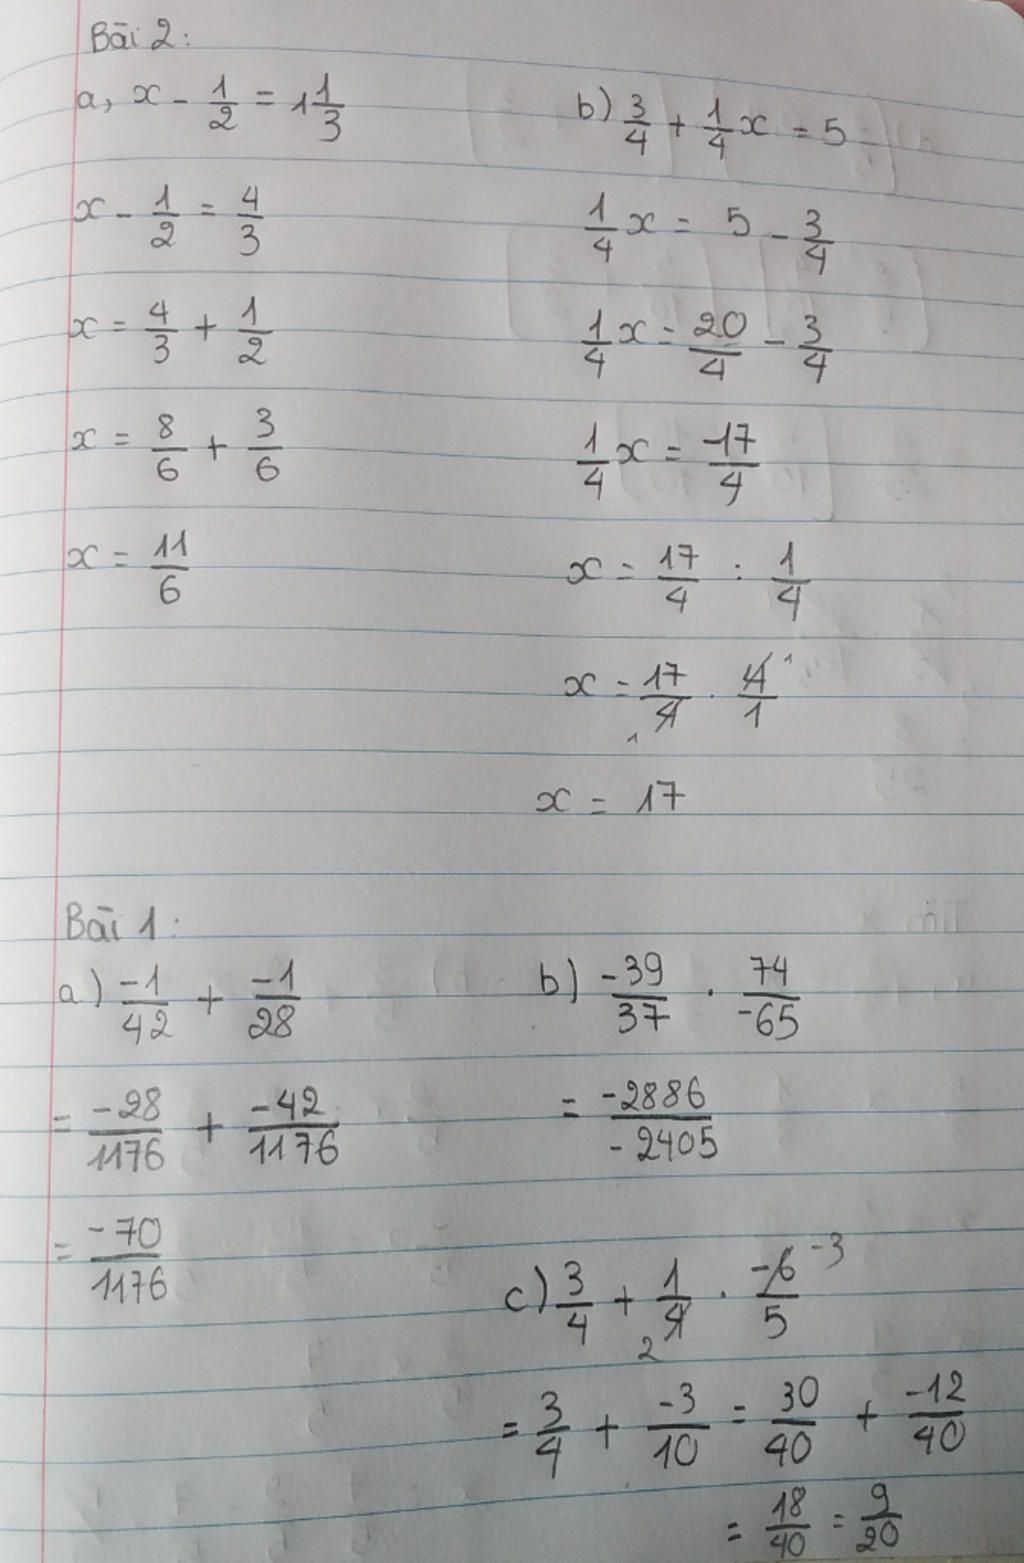 Bài 2:
a, x - 1/2 = 1 1/3
x - 1/2 = 4/3
x = 4/3 + 1/2
x = 8/6 + 3/6
x = 11/6
b) 3/4 + 1/4 x = 5
1/4 x = 5 - 3/4
1/4 x = 20/4 - 3/4
1/4 x = -17/4
x = 17/4 : 1/4
x = 17/4 1 . 4/1 1
x = 17
Bài 1:
a) -1/42 + -1/28
= -28/1176 + -42/1176
= -70/1176
b) -39/37 . 74/-65
= -2886/-2405
c) 3/4 + 1/4 2 . -6/5 -3
= 3/4 + -3/10 = 30/40 + -12/40
= 18/40 = 9/20